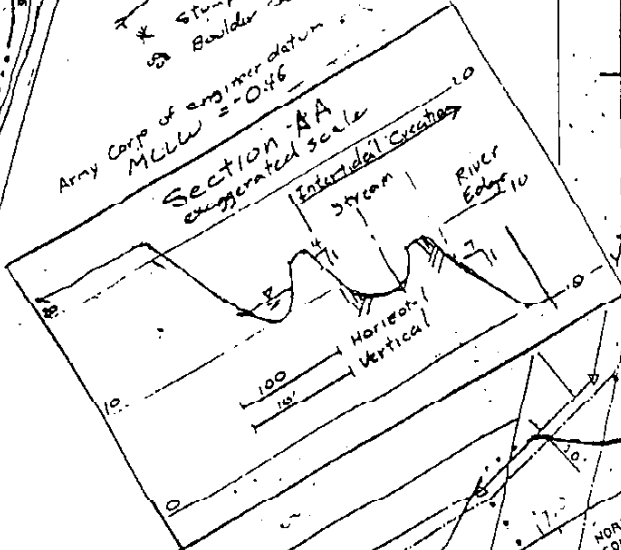 * Stump
Boulder
Army Corp of engineer datum
MLLW = -0.46
Section AA
exaggerated scale
Intertidal Creation
Stream
River
Edge
20
10
0
20
10
0
4
1
7
1
100
Horizont.
10'
Vertical